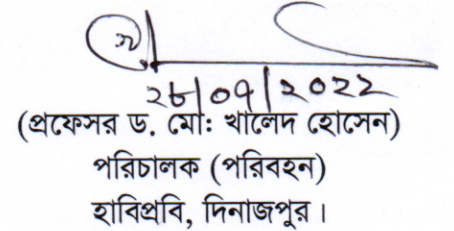 ২৮/০৭/২০২২
(প্রফেসর ড. মো: খালেদ হোসেন)
পরিচালক (পরিবহন)
হাবিপ্রবি, দিনাজপুর।